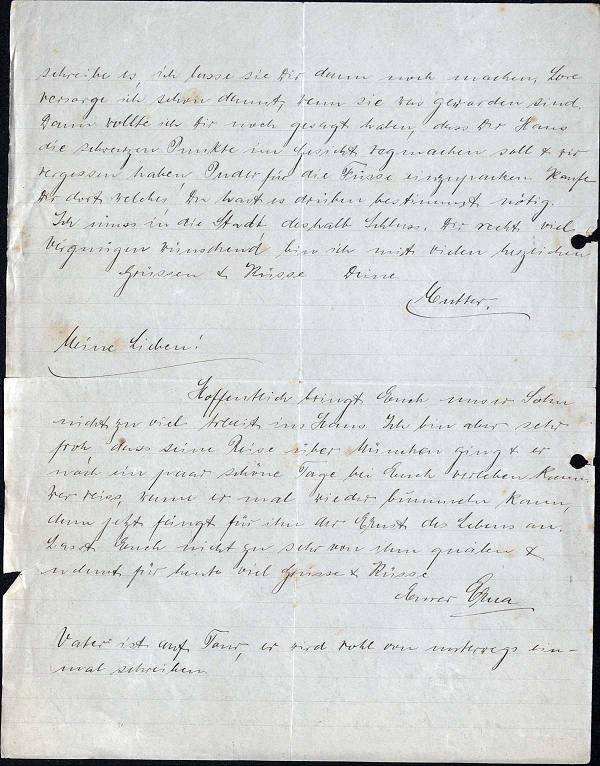 schreibe es, ich lasse sie Dir dann noch machen, Lore
versorge ich schon damit, wenn sie was geworden sind.
Dann wollte ich Dir noch gesagt haben, dass Dir Hans
die schwarzen Punkte im Gesicht wegmachen soll & wir
vergessen haben, Puder für die Füsse einzupacken. Kaufe
Dir dort welches, Du hast es drüben bestimmt nötig.
Ich muss in die Stadt deshalb Schluss. Dir recht viel
Vergnügen wünschend bin ich mit vielen herzlichen
Grüssen & Küsse Deine
Mutter.
Meine Lieben!
Hoffentlich bringt Euch unser Sohn
nicht zu viel Arbeit ins Haus. Ich bin aber sehr
froh, dass seine Reise über München ging & er
noch ein paar schöne Tage bei Euch verleben kann.
Wer weiss, wann er mal wieder bummeln kann,
denn jetzt fängt für ihn der Ernst des Lebens an.
Lasst Euch nicht zu sehr von ihm quälen &
nehmt für heute viel Grüsse & Küsse
Eurer Erna
Vater ist auf Tour, er wird wohl von unterwegs ein-
mal schreiben.